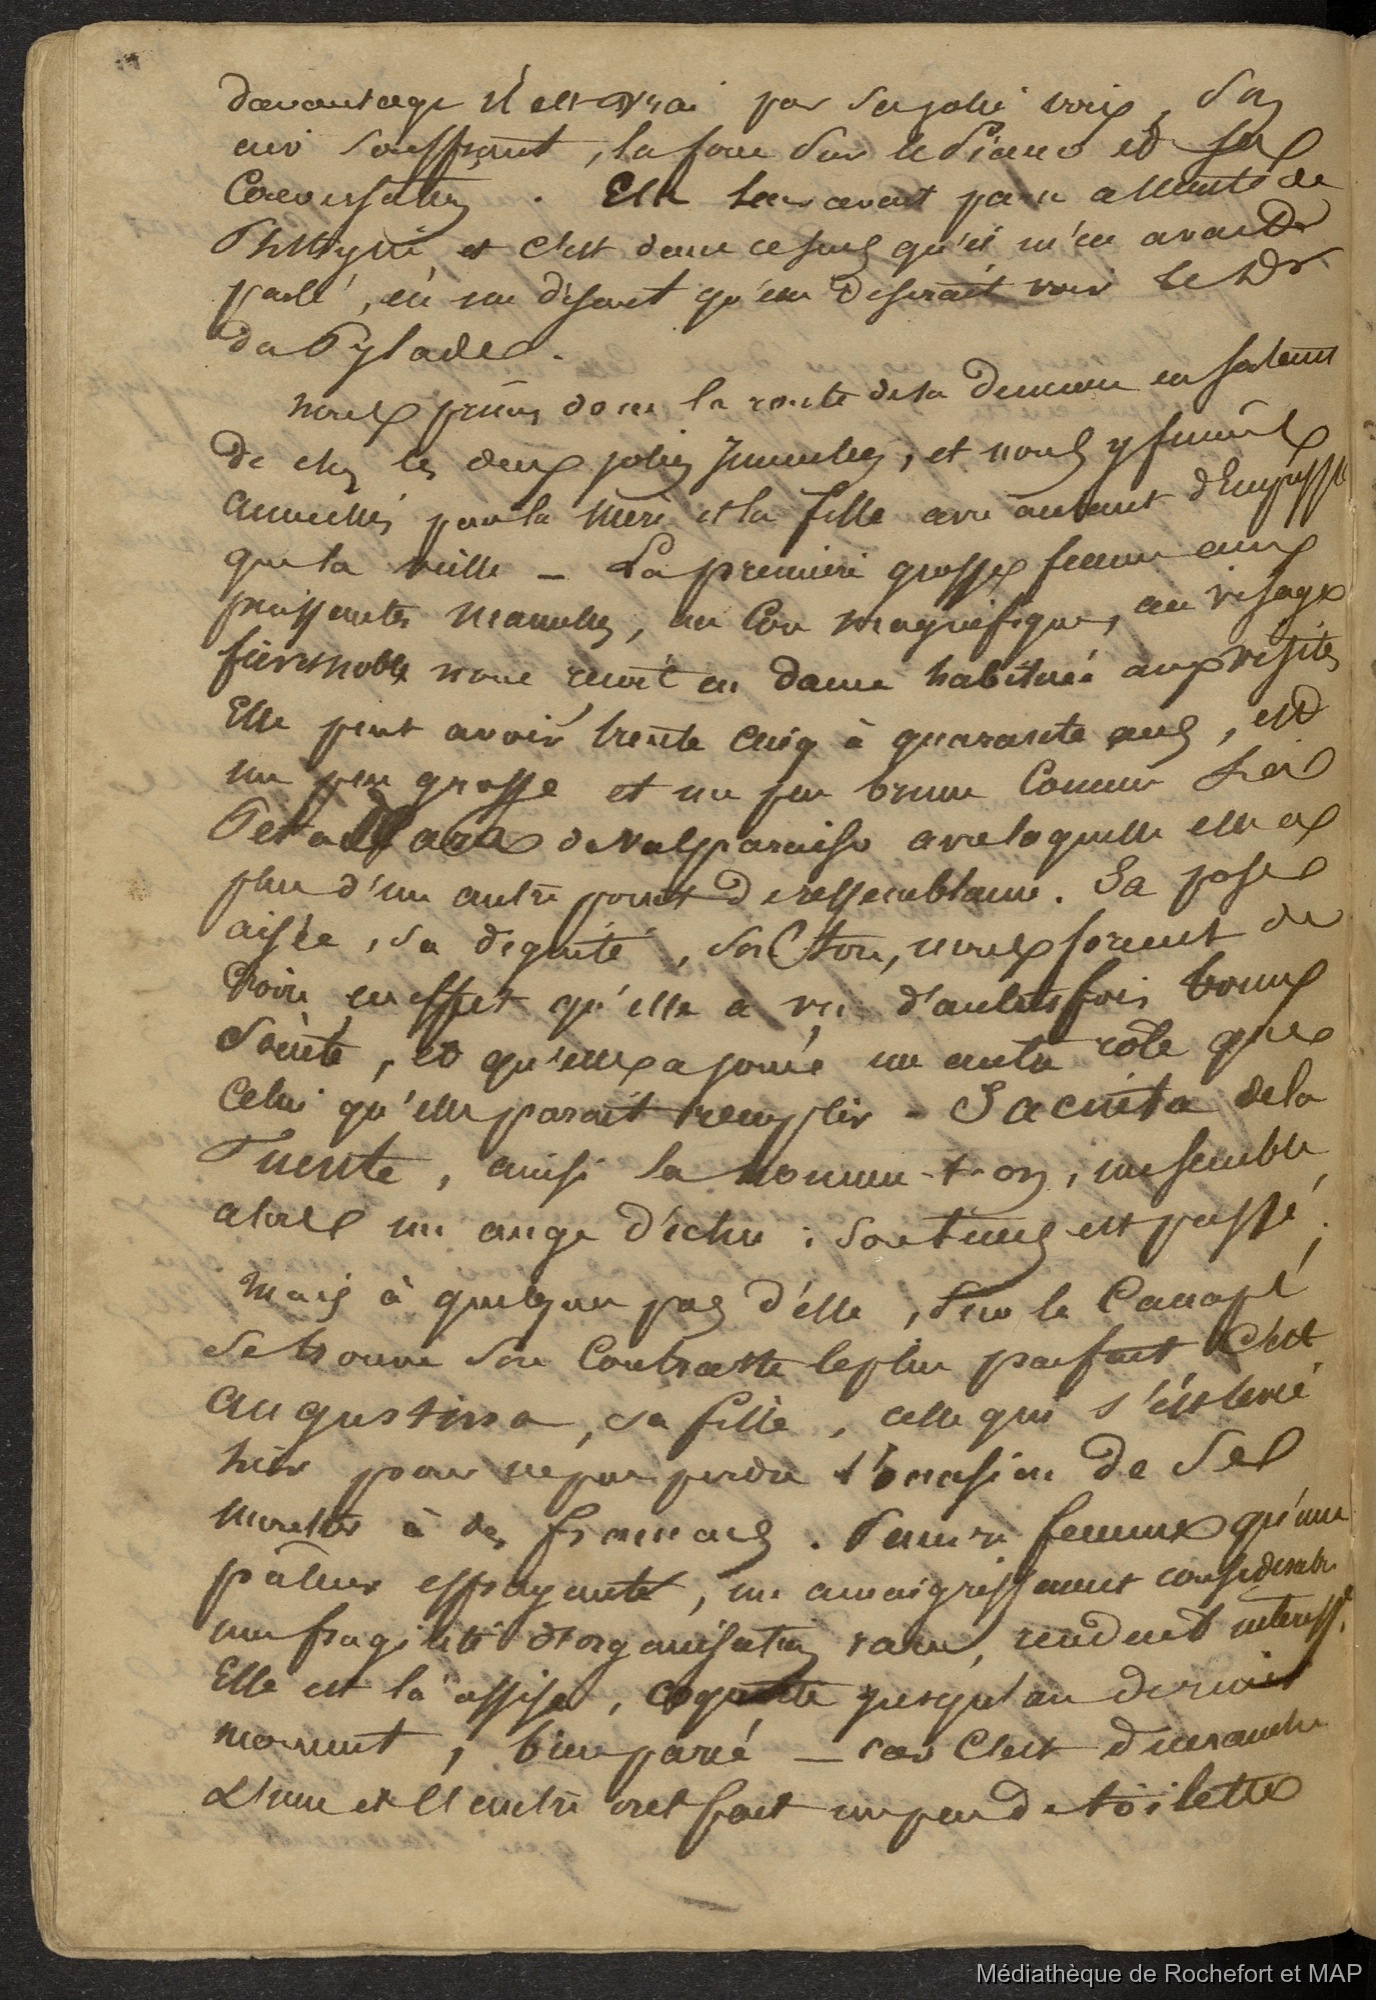 davantage il est vrai par sa jolie voix, son
air souffrant, sa force sur le Piano et sa
Conversation. Elle leur avait paru atteinte de
Phthysie et c'est dans ce sens qu'il m'en avait
parlé, en me disant qu'elle desirait voir le Dr
da Pylade.
nous primes donc la route de sa demeure en sortant
de chez les deux jolies jumelles, et nous y fumes
accueillis par la mère et la fille avec autant d'Empresst
que la veille - La première grosse femme aux
puissantes mamelles, au Cou magnifique, au visage
fier et noble nous reçoit en dame habituée aux visites
Elle peut avoir trente cinq à quarante ans, est
un peu grosse et un peu brune Comme
de Valparaiso avec laquelle elle a
plus d'un autre point de ressemblance. Sa pose
aisée, sa dignité, son ton, nous forcent de
Croire en effet qu'elle a vu d'autrefois bonne
Société, et qu'elle a jouée un autre rôle que
Celui qu'elle parait remplir - Jacinta de la
Puente, ainsi la nomme-t-on, me semble
alors un ange déchu : son temps est passé.
Mais à quelques pas d'elle, sur le Canapé
se trouve son Contraste le plus parfait C'est
Augustina, sa fille, celle qui s'est levée
hier pour ne pas perdre l'occasion de se
montrer à des français. Pauvre femme qu'une
pâleur effrayante, un amaigrissement considerable
une fragilité d'organisation rare, rendent interesste
Elle est là assise, coquette jusqu'au dernier
moment, bien parée - car C'est dimanche
L'une et l'autre ont fait un peu de toilette
Médiathèque de Rochefort et MAP